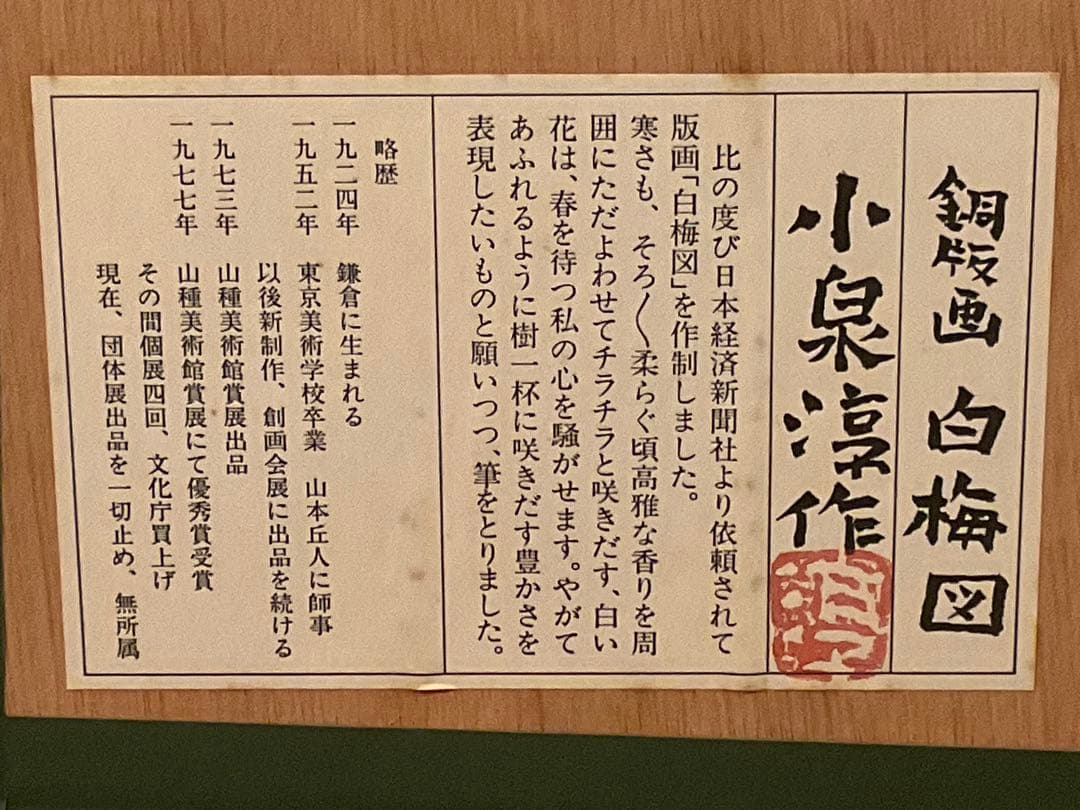 銅版画 白梅図
小泉淳作
比の度び日本経済新聞社より依頼されて
版画「白梅図」を作制しました。
寒さも、そろ〳〵柔らぐ頃高雅な香りを周
囲にただよわせてチラチラと咲きだす、白い
花は、春を待つ私の心を騒がせます。やがて
あふれるように樹一杯に咲きだす豊かさを
表現したいものと願いつつ、筆をとりました。
略歴
一九二四年 鎌倉に生まれる
一九五二年 東京美術学校卒業 山本丘人に師事
以後新制作、創画会展に出品を続ける
一九七三年 山種美術館賞展出品
一九七七年 山種美術館賞展にて優秀賞受賞
その間個展四回、文化庁買上げ
現在、団体展出品を一切止め、無所属